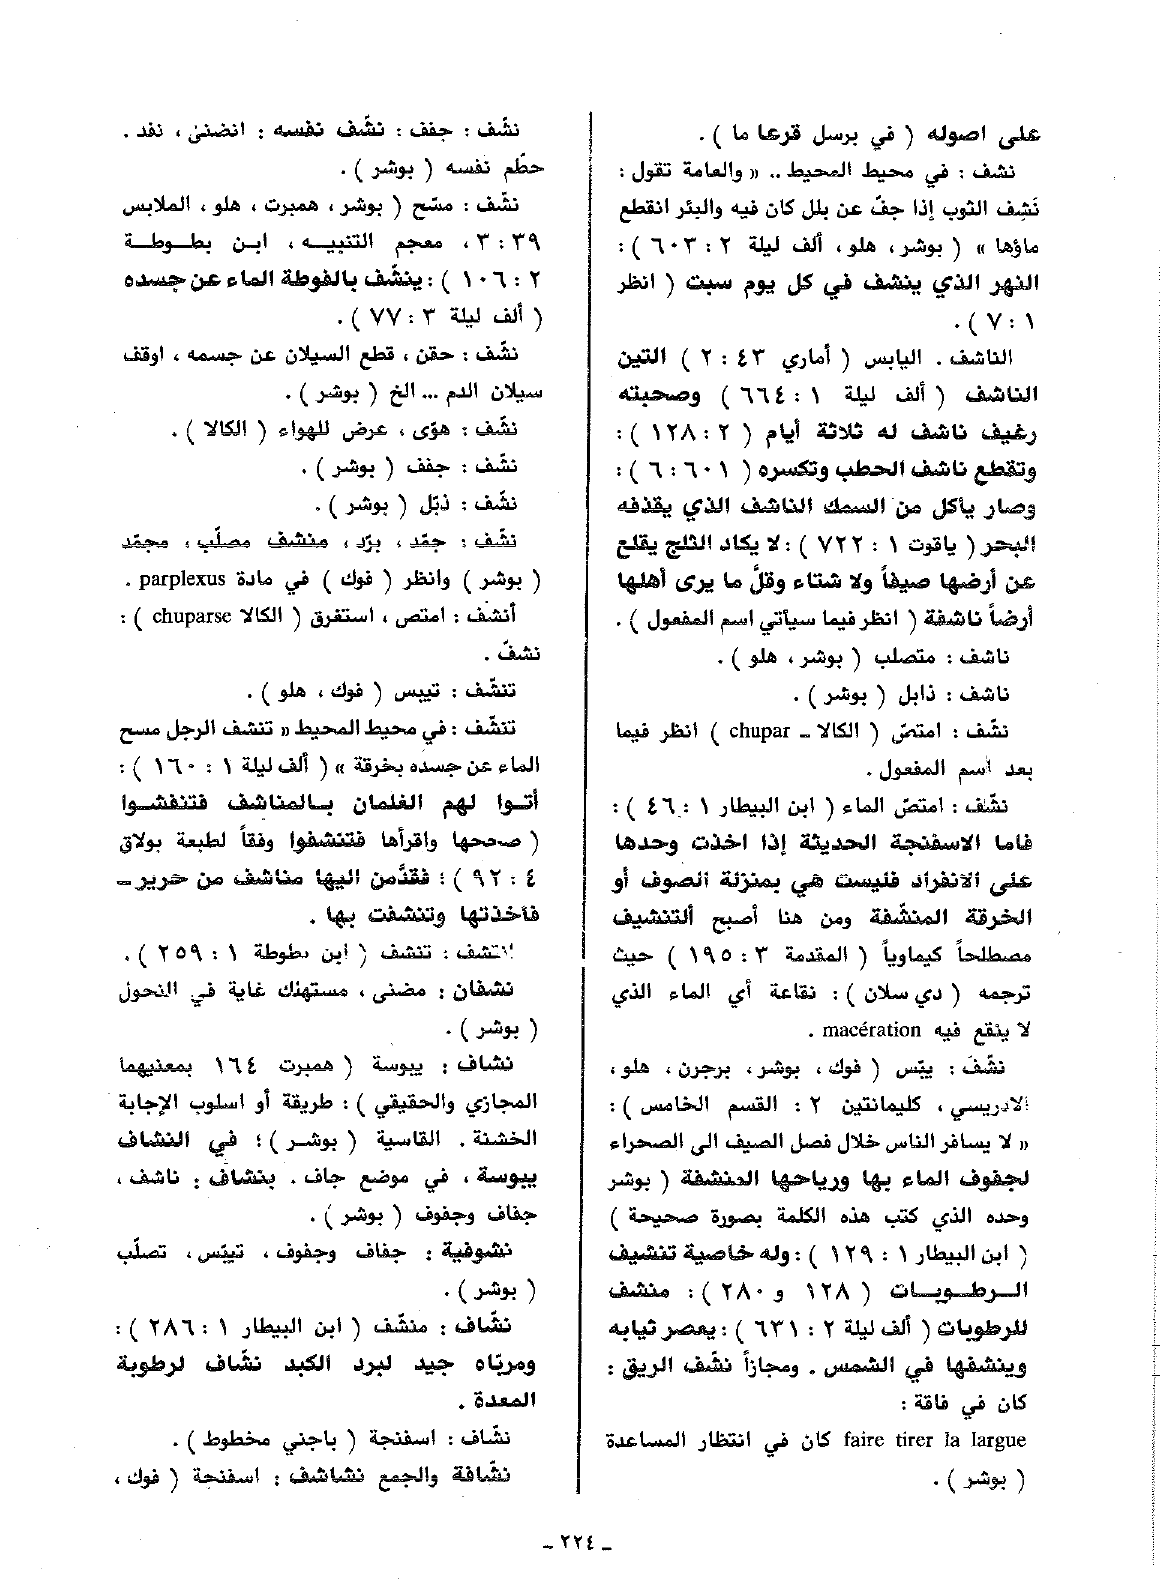 على اصوله ( في برسل قرعا ما ) .
نشف : في محيط المحيط .. « والعامة تقول :
نَشِف الثوب إذا جفّ عن بلل كان فيه والبئر انقطع
ماؤها » ( بوشر، هلو، ألف ليلة ٢ : ٦٠٣ ) :
النهر الذي ينشف في كل يوم سبت ( انظر
١ : ٧ ) .
الناشف . اليابس ( أماري ٤٣ : ٢ ) التين
الناشف ( ألف ليلة ١ : ٦٦٤ ) وصحبته
رغيف ناشف له ثلاثة أيام ( ٢ : ١٢٨ ) :
وتقطع ناشف الحطب وتكسره ( ٦٠١ : ٦ ) :
وصار يأكل من السمك الناشف الذي يقذفه
البحر ( ياقوت ١ : ٧٢٢ ) : لا يكاد الثلج يقلع
عن أرضها صيفاً ولا شتاء وقلّ ما يرى أهلها
أرضاً ناشفة ( انظر فيما سيأتي اسم المفعول ) .
ناشف : متصلب ( بوشر، هلو ) .
ناشف : ذابل ( بوشر ) .
نشّف : امتصّ ( الكالا ـ chupar ) انظر فيما
بعد اسم المفعول .
نشّف : امتصّ الماء ( ابن البيطار ١ : ٤٦ ) :
فاما الاسفنجة الحديثة إذا اخذت وحدها
على الانفراد فليست هي بمنزلة الصوف أو
الخرقة المنشّفة ومن هنا أصبح ألتنشيف
مصطلحاً كيماوياً ( المقدمة ٣ : ١٩٥ ) حيث
ترجمه ( دي سلان ) : نقاعة أي الماء الذي
لا ينقع فيه macération .
نشّف : يبّس ( فوك ، بوشر، برجرن ، هلو ،
الادريسي ، كليمانتين ٢ : القسم الخامس ) :
« لا يسافر الناس خلال فصل الصيف الى الصحراء
لجفوف الماء بها ورياحها المنشفة ( بوشر
وحده الذي كتب هذه الكلمة بصورة صحيحة )
( ابن البيطار ١ : ١٢٩ ) : وله خاصية تنشيف
الـرطـوبـات ( ١٢٨ و ٢٨٠ ) : منشف
للرطوبات ( ألف ليلة ٢ : ٦٣١ ) : يعصر ثيابه
وينشفها في الشمس . ومجازاً نشّف الريق :
كان في فاقة :
faire tirer la largue كان في انتظار المساعدة
( بوشر ) .
نشّف : جفف : نشّف نفسه : انضنىٰ ، نفد .
حطّم نفسه ( بوشر ) .
نشّف : مسّح ( بوشر ، همبرت ، هلو ، الملابس
٣٩ : ٣، معجم التنبيـه ، ابـن بطـوطـة
٢ : ١٠٦ ) : ينشّف بالفوطة الماء عن جسده
( ألف ليلة ٣ : ٧٧ ) .
نشّف : حقن ، قطع السيلان عن جسمه ، اوقف
سيلان الدم ... الخ ( بوشر ) .
نشّف : هوّى ، عرض للهواء ( الكالا ) .
نشّف : جفف ( بوشر ) .
نشّف : ذبّل ( بوشر ) .
نشّف : جمّد ، برّد ، منشف مصلّب ، مجمّد
( بوشر ) وانظر ( فوك ) في مادة parplexus .
أنشف : امتص ، استغرق ( الكالا chuparse ) :
نشفّ .
تنشّف : تيبس ( فوك ، هلو ) .
تنشّف : في محيط المحيط « تنشف الرجل مسح
الماء عن جسده بخرقة » ( ألف ليلة ١ : ١٦٠ ) :
أتـوا لهم الغلمان بـالمناشف فتنفشـوا
( صححها واقرأها فتنشفوا وفقاً لطبعة بولاق
٤ : ٩٢ ) : فقدّمن اليها مناشف من حرير ـ
فأخذتها وتنشفت بها .
انتشف : تنشف ( ابن بطوطة ١ : ٢٥٩ ) .
نشفان : مضنى ، مستهلك غاية في النحول
( بوشر ) .
نشاف : يبوسة ( همبرت ١٦٤ بمعنيهما
المجازي والحقيقي ) : طريقة أو اسلوب الإجابة
الخشنة . القاسية ( بوشـر ) ؛ في النشاف
يبوسة ، في موضع جاف . بنشاف : ناشف ،
جفاف وجفوف ( بوشر ) .
نشوفية : جفاف وجفوف ، تيبّس ، تصلّب
( بوشر ) .
نشّاف : منشّف ( ابن البيطار ١ : ٢٨٦ ) :
ومربّاه جيد لبرد الكبد نشّاف لرطوبة
المعدة .
نشّاف : اسفنجة ( باجني مخطوط ) .
نشّافة والجمع نشاشف : اسفنجة ( فوك ،
ـ ٢٢٤ ـ